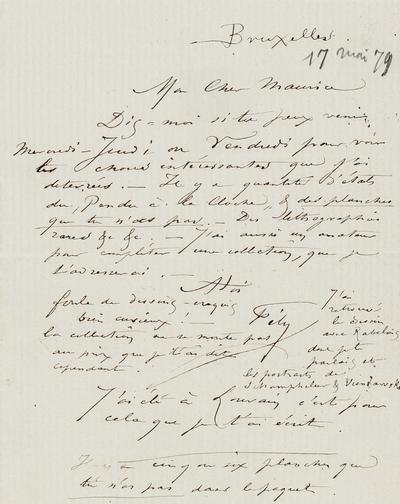 Bruxelles
17 mai 79
Mon Cher Maurice
Dis-moi si tu peux venir
Mercredi - Jeudi ou Vendredi pour voir
les choses intéressantes que j'ai
déterrées. — Il y a quantité d'états
du, Pendu à la Cloche, & des planches
que tu n'as pas. — Des lithographies
rares &c &c. — J'ai aussi un amateur
pour compléter une collection, que je
t'adresserai. —
à toi
foule de dessins-croquis
bien curieux! —
la collection ne se monte pas
au prix que je t'ai dit
cependant.
Fély
J'ai
retrouvé
le dessin
avec Rabelais
dont je t'
parlais et
les portraits de
J'ai été à Louvain c'est pour
cela que je t'ai écrit.
Il y a cinq ou six planches que
tu n'as pas dans le paquet.